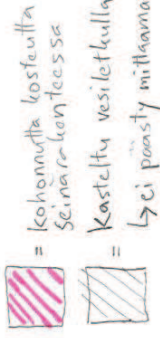 = kohonnutta kosteutta
seinärakenteessa
= Kasteltu vesiletkulla
↳ ei päästy mittaamaan